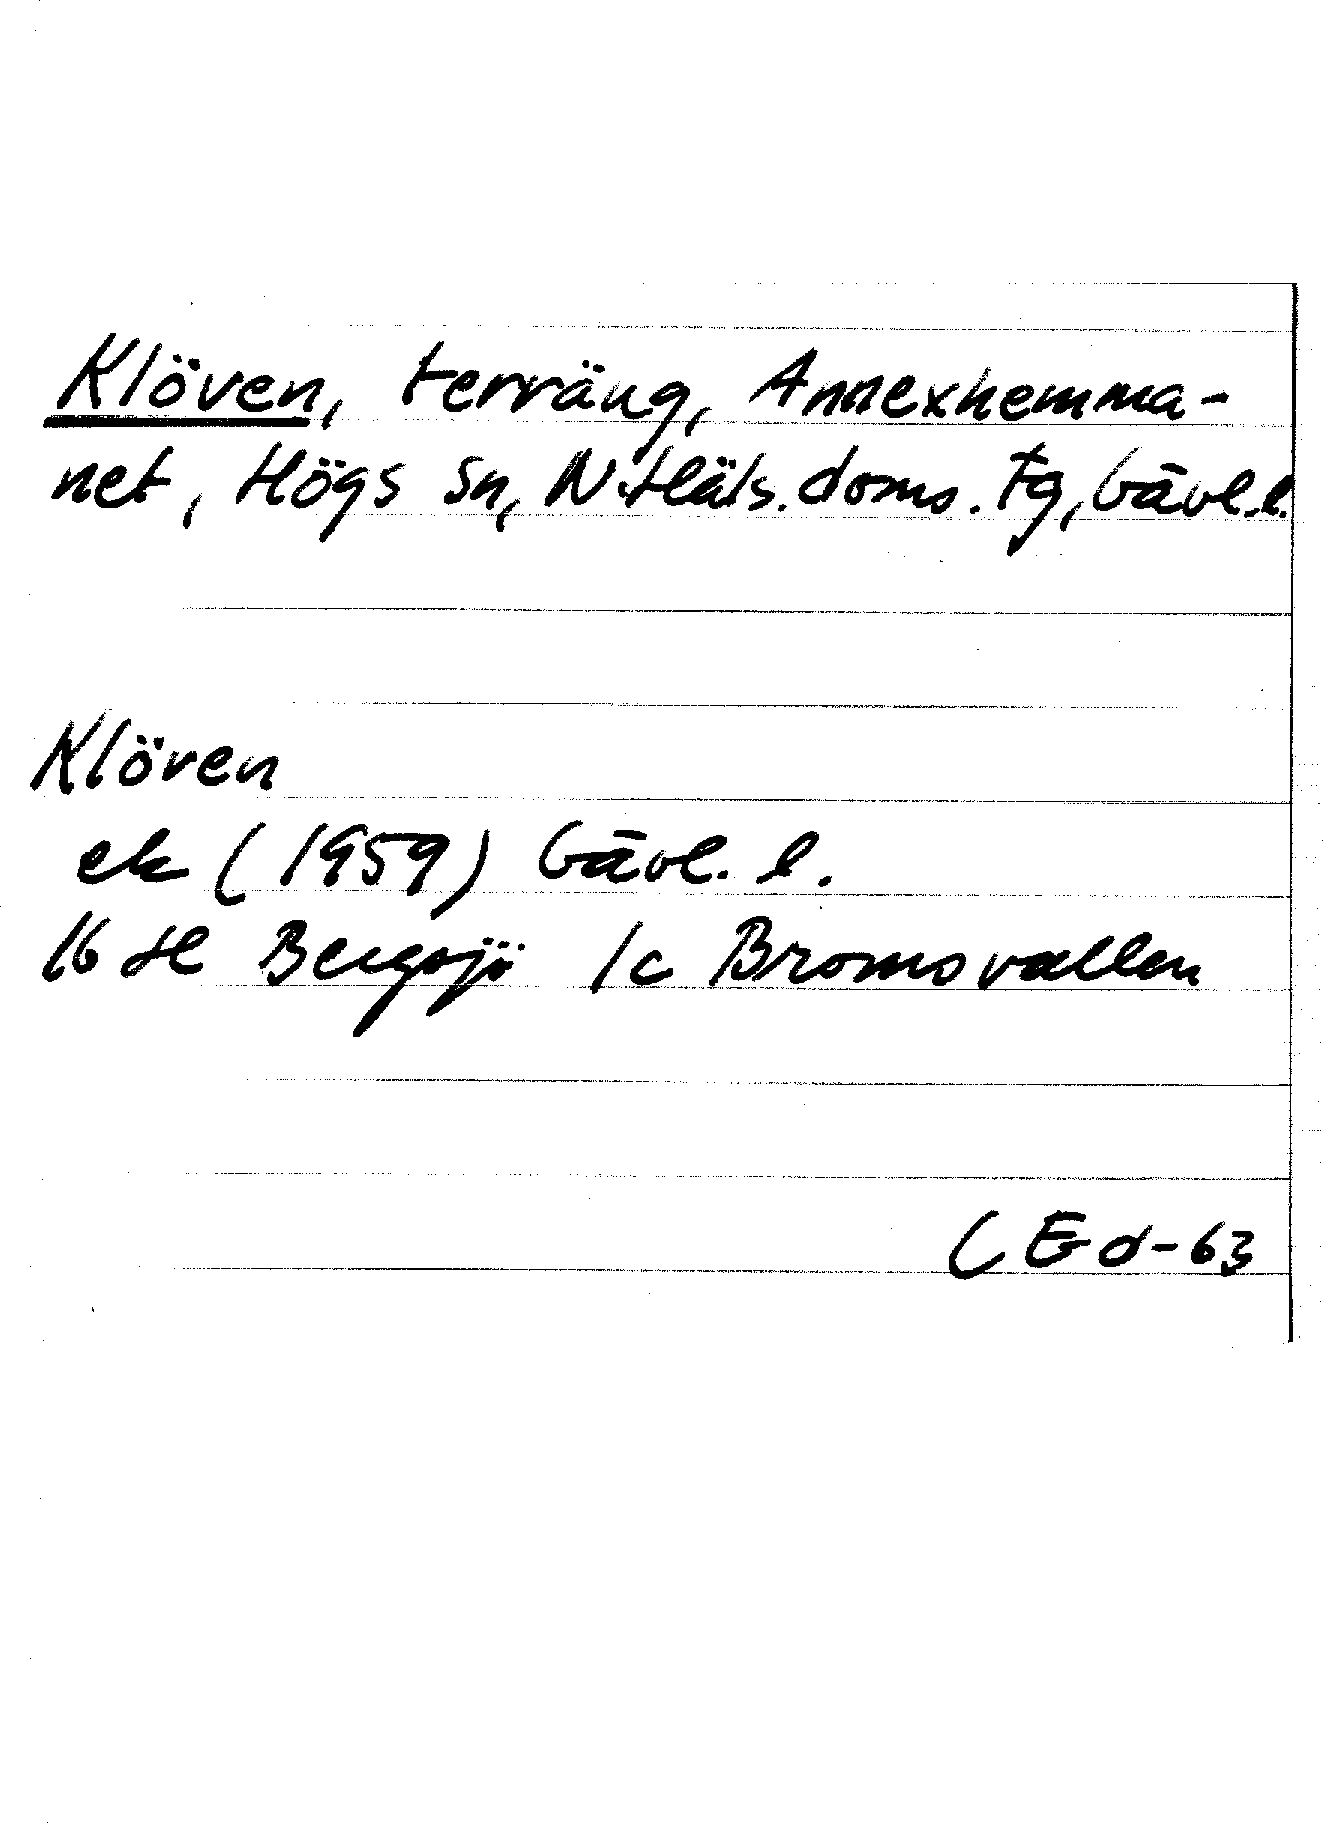 Klöven, terräng, Annexhemma-
net, Högs sn, N.Häls. doms. tg, Gävl.l.
Klöven
ek (1959) Gävl. l.
16 H Bergsjö 1c Bromsvallen
CEd-63